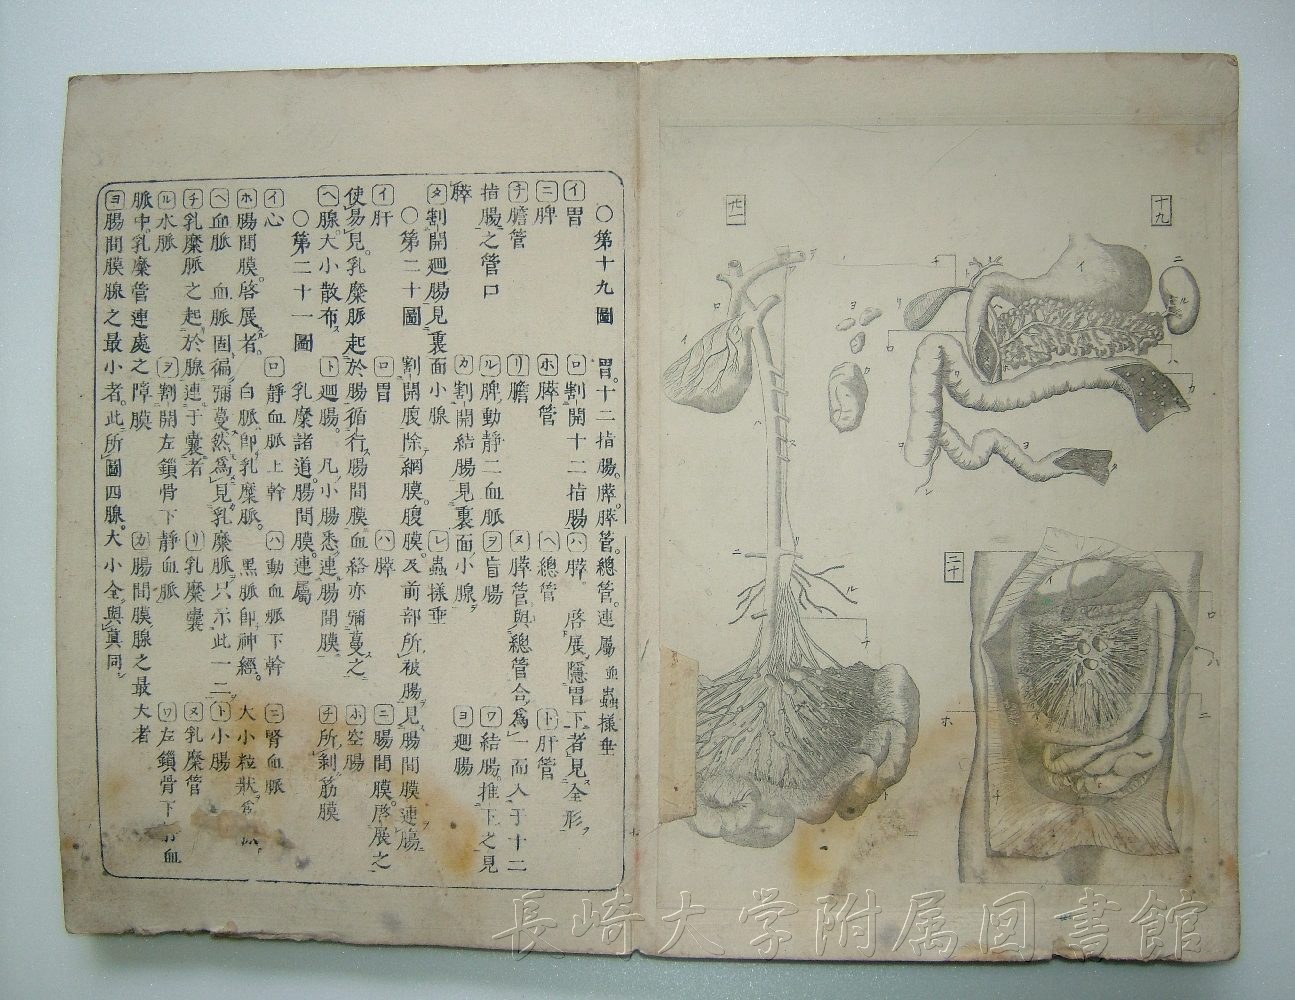 ○第十九圖　胃。十二指腸。膵。膵管。總管。連屬並蟲樣垂
イ胃　ロ割開十二指腸　ハ膵　啓展隱胃下者見全形
ニ脾　ホ膵管　ヘ總管　ト肝管
チ膽管　リ膽　ヌ膵管與總管合爲一而入于十二
指腸之管口　ル脾動靜二血脈　ヲ盲腸　ワ結腸。推下之見
膵　カ割開結腸見裏面小腺　ヨ廻腸
タ割開廻腸見裏面小腺　レ蟲樣垂
○第二十圖　割開腹除網膜。腹膜。及前部所被腸見腸間膜連腸
イ肝　ロ胃　ハ膵　ニ腸間膜。啓展之
使易見。乳糜脈起於腸循行腸間膜。血絡亦彌蔓之　ホ空腸
ヘ腺。大小散布　ト廻腸。凡小腸悉連腸間膜　チ所剩筋膜
○第二十一圖　乳糜諸道。腸間膜。連屬
イ心　ロ靜血脈上幹　ハ動血脈下幹　ニ腎血脈
ホ腸間膜。啓展者　白脈卽乳糜脈。　黑脈卽神經。　大小粒狀
ヘ血脈　血脈固徧彌蔓然爲見乳糜脈只示此一二　ト小腸
チ乳糜脈之起於腺連于囊者　リ乳糜囊　ヌ乳糜管
ル水脈　ヲ割開左鎖骨下靜血脈　ワ左鎖骨下血
脈中。乳糜管連處之障膜　カ腸間膜腺之最大者
ヨ腸間膜腺之最小者。此所圖四腺。大小全與眞同
十九
廿一
二十
長崎大学附属図書館